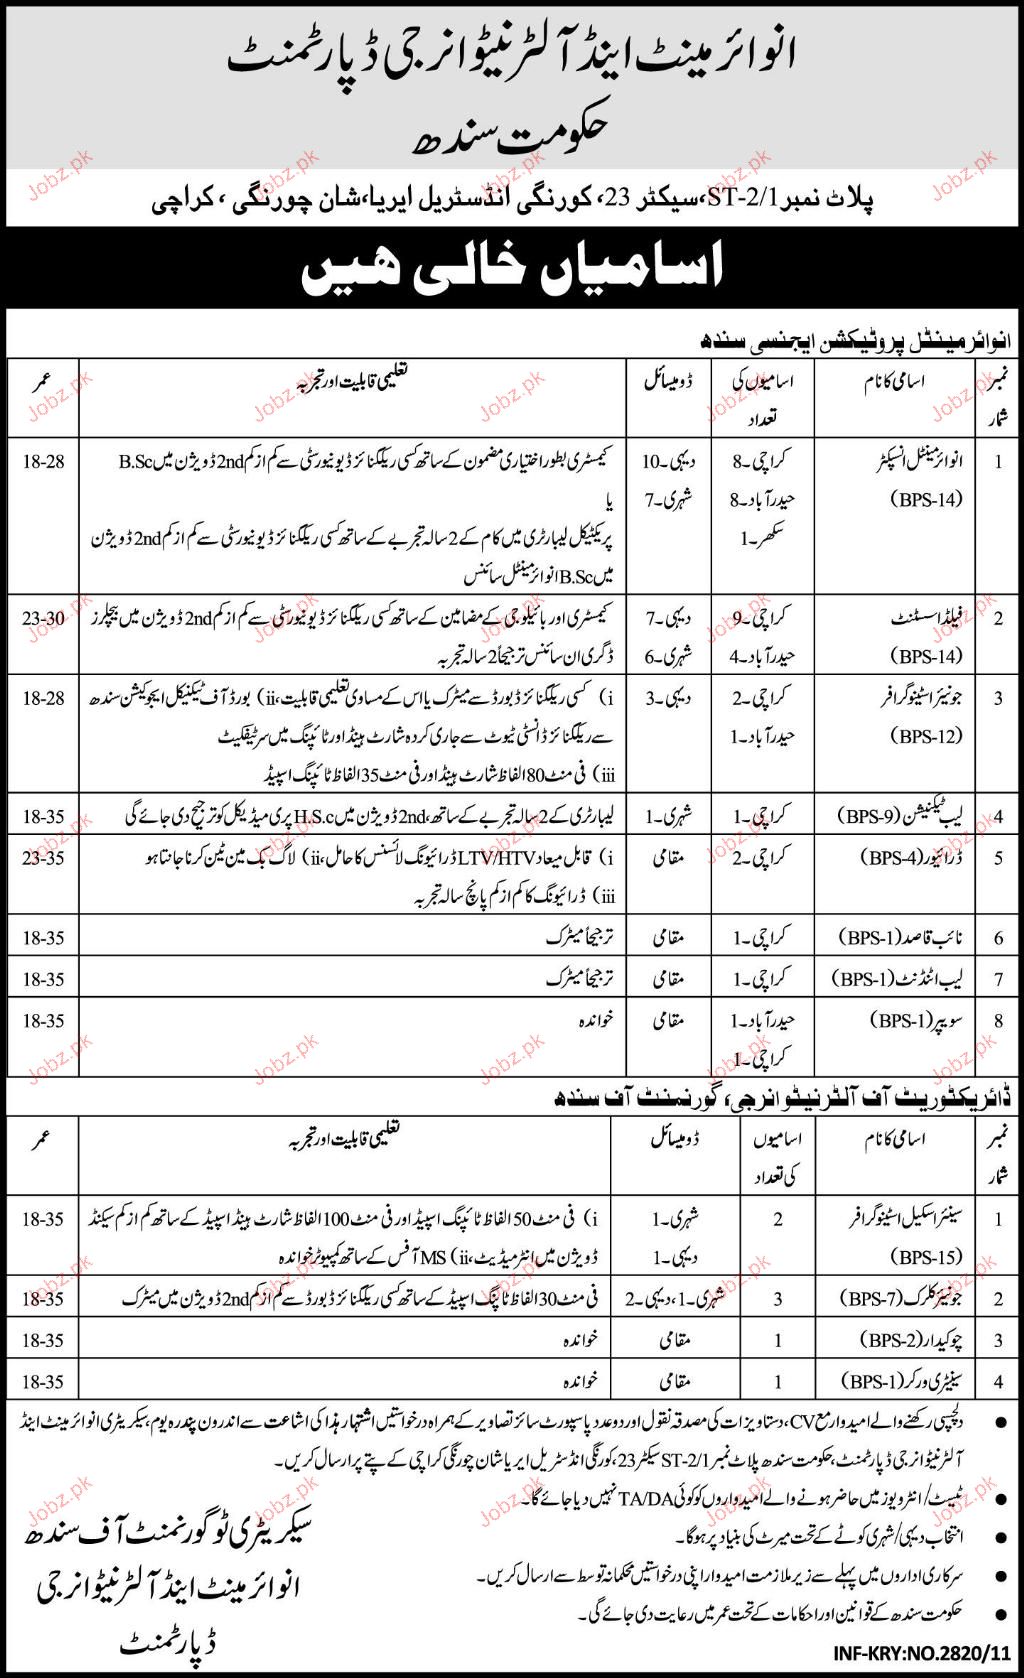 انوائرمینٹ اینڈ آلٹرنیٹو انرجی ڈپارٹمنٹ
حکومت سندھ
پلاٹ نمبر ST-2/1، سیکٹر 23، کورنگی انڈسٹریل ایریا، شان چورنگی ، کراچی
اسامیاں خالی ھیں
انوائرمینٹل پروٹیکشن ایجنسی سندھ
نمبر شمار | اسامی کا نام | اسامیوں کی تعداد | ڈومیسائل | تعلیمی قابلیت اور تجربہ | عمر
1 | انوائرمینٹل انسپکٹر (BPS-14) | کراچی۔8 حیدرآباد۔8 سکھر۔1 | دیہی۔10 شہری۔7 | کیمسٹری بطور اختیاری مضمون کے ساتھ کسی ریکگنائزڈ یونیورسٹی سے کم از کم 2nd ڈویژن میں B.Sc | 18-28
یا
پریکٹیکل لیبارٹری میں کام کے 2 سالہ تجربے کے ساتھ کسی ریکگنائزڈ یونیورسٹی سے کم از کم 2nd ڈویژن
میں B.Sc انوائرمینٹل سائنس
2 | فیلڈ اسسٹنٹ (BPS-14) | کراچی۔9 حیدرآباد۔4 | دیہی۔7 شہری۔6 | کیمسٹری اور بائیلوجی کے مضامین کے ساتھ کسی ریکگنائزڈ یونیورسٹی سے کم از کم 2nd ڈویژن میں بیچلرز | 23-30
ڈگری ان سائنس ترجیحاً 2 سالہ تجربہ
3 | جونیئر اسٹینوگرافر (BPS-12) | کراچی۔2 حیدرآباد۔1 | دیہی۔3 | i) کسی ریکگنائزڈ بورڈ سے میٹرک یا اس کے مساوی تعلیمی قابلیت، ii) بورڈ آف ٹیکنیکل ایجوکیشن سندھ | 18-28
سے ریکگنائزڈ انسٹی ٹیوٹ سے جاری کردہ شارٹ ہینڈ اور ٹائپنگ میں سرٹیفکیٹ
iii) فی منٹ 80 الفاظ شارٹ ہینڈ اور فی منٹ 35 الفاظ ٹائپنگ اسپیڈ
4 | لیب ٹیکنیشن (BPS-9) | کراچی۔1 | شہری۔1 | لیبارٹری کے 2 سالہ تجربے کے ساتھ، 2nd ڈویژن میں H.S.c پری میڈیکل کو ترجیح دی جائے گی | 18-35
5 | ڈرائیور (BPS-4) | کراچی۔2 | مقامی | i) قابل میعاد LTV/HTV ڈرائیونگ لائسنس کا حامل، ii) لاگ بک مین ٹین کرنا جانتا ہو | 23-35
iii) ڈرائیونگ کا کم از کم پانچ سالہ تجربہ
6 | نائب قاصد (BPS-1) | کراچی۔1 | مقامی | ترجیحاً میٹرک | 18-35
7 | لیب اٹنڈنٹ (BPS-1) | کراچی۔1 | مقامی | ترجیحاً میٹرک | 18-35
8 | سویپر (BPS-1) | حیدرآباد۔1 کراچی۔1 | مقامی | خواندہ | 18-35
ڈائریکٹوریٹ آف آلٹرنیٹو انرجی، گورنمنٹ آف سندھ
نمبر شمار | اسامی کا نام | اسامیوں کی تعداد | ڈومیسائل | تعلیمی قابلیت اور تجربہ | عمر
1 | سینئر اسکیل اسٹینوگرافر (BPS-15) | 2 | شہری۔1 دیہی۔1 | i) فی منٹ 50 الفاظ ٹائپنگ اسپیڈ اور فی منٹ 100 الفاظ شارٹ ہینڈ اسپیڈ کے ساتھ کم از کم سیکنڈ | 18-35
ڈویژن میں انٹرمیڈیٹ، ii) MS آفس کے ساتھ کمپیوٹر خواندہ
2 | جونیئر کلرک (BPS-7) | 3 | شہری۔1، دیہی۔2 | فی منٹ 30 الفاظ ٹائپنگ اسپیڈ کے ساتھ کسی ریکگنائزڈ بورڈ سے کم از کم 2nd ڈویژن میں میٹرک | 18-35
3 | چوکیدار (BPS-2) | 1 | مقامی | خواندہ | 18-35
4 | سینیٹری ورکر (BPS-1) | 1 | مقامی | خواندہ | 18-35
● دلچسپی رکھنے والے امیدوار مع CV، دستاویزات کی مصدقہ نقول اور دو عدد پاسپورٹ سائز تصاویر کے ہمراہ درخواستیں اشتہار ہذا کی اشاعت سے اندرون پندرہ یوم، سیکریٹری انوائرمینٹ اینڈ
آلٹرنیٹو انرجی ڈپارٹمنٹ، حکومت سندھ پلاٹ نمبر ST-2/1 سیکٹر 23، کورنگی انڈسٹریل ایریا شان چورنگی کراچی کے پتے پر ارسال کریں۔
● ٹیسٹ/انٹرویوز میں حاضر ہونے والے امیدواروں کو کوئی TA/DA نہیں دیا جائے گا۔
● انتخاب دیہی/شہری کوٹے کے تحت میرٹ کی بنیاد پر ہوگا۔
● سرکاری اداروں میں پہلے سے زیر ملازمت امیدوار اپنی درخواستیں محکمانہ توسط سے ارسال کریں۔
● حکومت سندھ کے قوانین اور احکامات کے تحت عمر میں رعایت دی جائے گی۔
سیکریٹری ٹو گورنمنٹ آف سندھ
انوائرمینٹ اینڈ آلٹرنیٹو انرجی
ڈپارٹمنٹ
INF-KRY:NO.2820/11
Jobz.pk